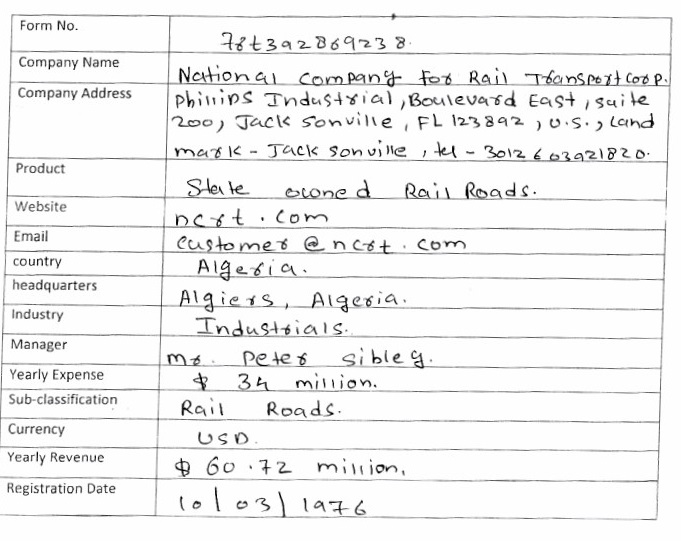 Form No.
78t392869238.
Company Name
National company for Rail Transport Corp.
Company Address
Phillips Industrial, Boulevard East, suite
200, Jacksonville, FL 123892, U.S., Land
mark - Jacksonville, tel - 3012603921820.
Product
State owned Rail Roads.
Website
ncrt.com
Email
customer@ncrt.com
country
Algeria.
headquarters
Algiers, Algeria.
Industry
Industrials.
Manager
mr. Peter sibley.
Yearly Expense
$ 34 million.
Sub-classification
Rail Roads.
Currency
USD.
Yearly Revenue
$ 60.72 million.
Registration Date
10/03/1976